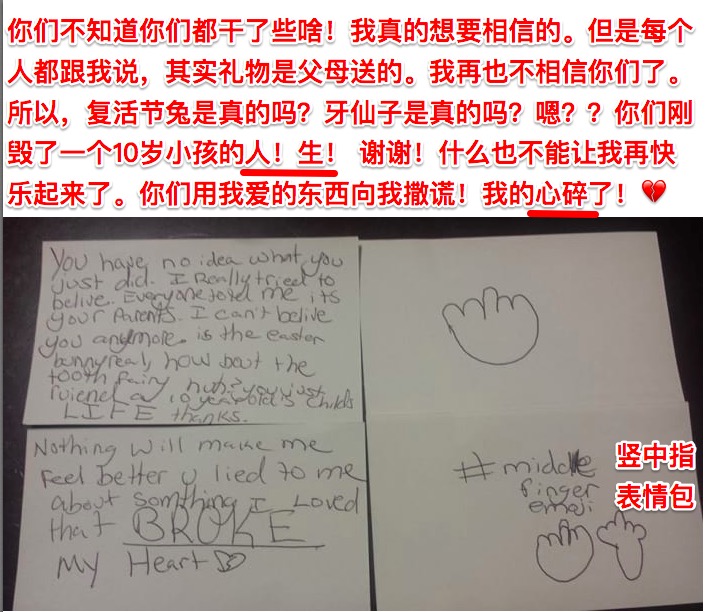 你们不知道你们都干了些啥！我真的想要相信的。但是每个
人都跟我说，其实礼物是父母送的。我再也不相信你们了。
所以，复活节兔是真的吗？牙仙子是真的吗？嗯？？你们刚
毁了一个10岁小孩的人！生！ 谢谢！什么也不能让我再快
乐起来了。你们用我爱的东西向我撒谎！我的心碎了！💔
You have no idea what you
just did. I Really tried to
belive. Everyone me its
your Parents. I can't belive
you anymore. is the easter
bunny real, how bout the
tooth fairy huh? you just
a 10 year old's childs
LIFE thanks.
Nothing will make me
Feel better u lied to me
about somthing I Loved
that BROKE
My Heart
#middle
finger
emoji
竖中指
表情包